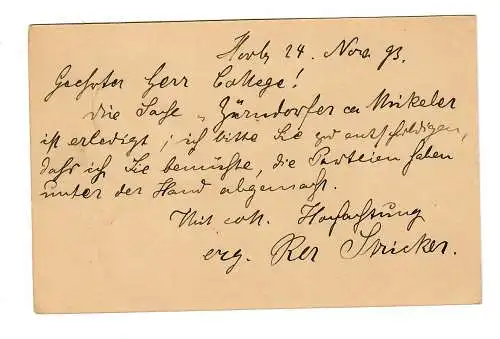 Horb 24. Nov. 93.
Geehrter Herr College!
Die Sache "Zürndorfer ca Minkeler
ist erledigt; ich bitte Sie zu entschuldigen,
daß ich Sie bemühte, die Parteien haben
unter der Hand abgemacht.
Mit coll. Hochachtung
erg. Stricker.